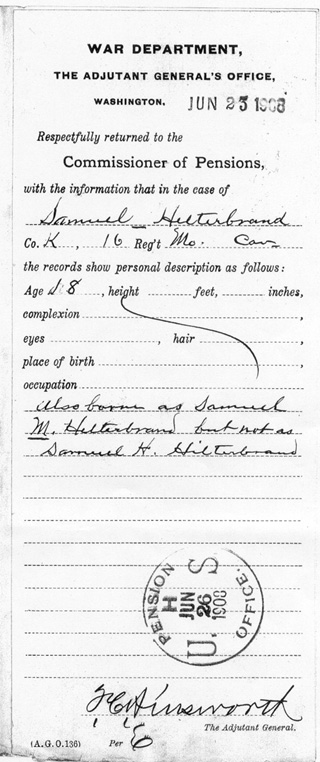 WAR DEPARTMENT,
THE ADJUTANT GENERAL'S OFFICE,
WASHINGTON, JUN 23 1908
Respectfully returned to the
Commissioner of Pensions,
with the information that in the case of
Samuel Hilterbrand
Co. K, 16 Reg't Mo. Cav
the records show personal description as follows:
Age 18, height feet, inches,
complexion ,
eyes , hair ,
place of birth ,
occupation
Also borne as Samuel
M. Hilterbrand but not as
Samuel H. Hilterbrand
PENSION OFFICE.
U. S.
H
JUN
26
1908
F C Ainsworth
The Adjutant General.
(A.G.O.136) Per